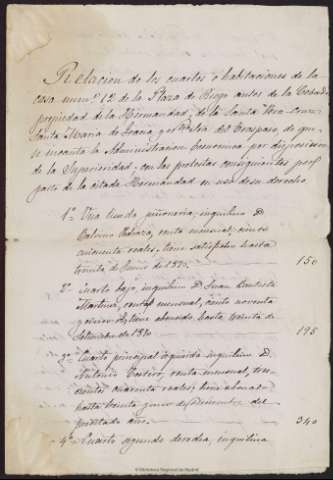 Relacion de los cuartos o habitaciones de la
casa num.º 12 de la Plaza de Riego antes de la Cebada
propiedad de la Hermandad, de la Santa Vera-Cruz
Santa Maria de Gracia, y del Traspaso, de que
se incauta la Administracion Economica por disposicion
de la Superioridad, con las protestas consiguientes por
parte de la citada Hermandad en uso de su derecho
1º Una tienda inquilino D.
renta mensual, cincuenta reales, tiene satisfecho hasta
treinta de Junio de 1870. 150
2º Cuarto bajo, inquilino D. Juan Bautista
Martinez, renta mensual, ciento noventa
tiene abonado hasta treinta de
Setiembre de 1870 195
3º Cuarto principal izquierda inquilino D.
Antonio renta mensual, trescientos cuarenta reales, tiene abonado
hasta treinta y uno de Diciembre del
prestado año. 340
4º Cuarto segundo derecha, inquilino
© Biblioteca Regional de Madrid